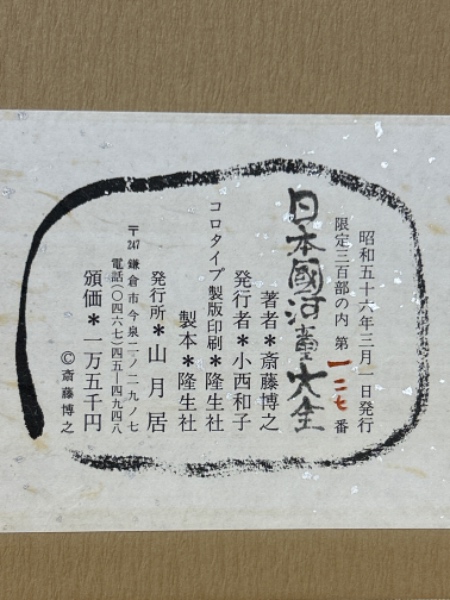 昭和五十六年三月一日発行
限定三百部の内 第一二七番
日本國河童大全
著者＊斎藤博之
発行者＊小西和子
コロタイプ製版印刷＊隆生社
製本＊隆生社
発行所＊山月居
〒247 鎌倉市今泉二ノ二九ノ七
電話〇四六七(四五)四九四八
頒価＊一万五千円
©斎藤博之